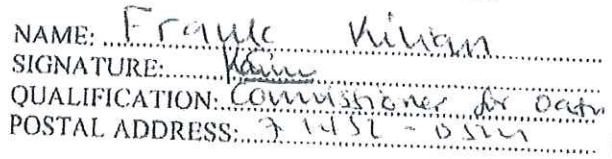 NAME: Frank Kilian
SIGNATURE:
QUALIFICATION: Commissioner for Oath
POSTAL ADDRESS: 71452 - DSM